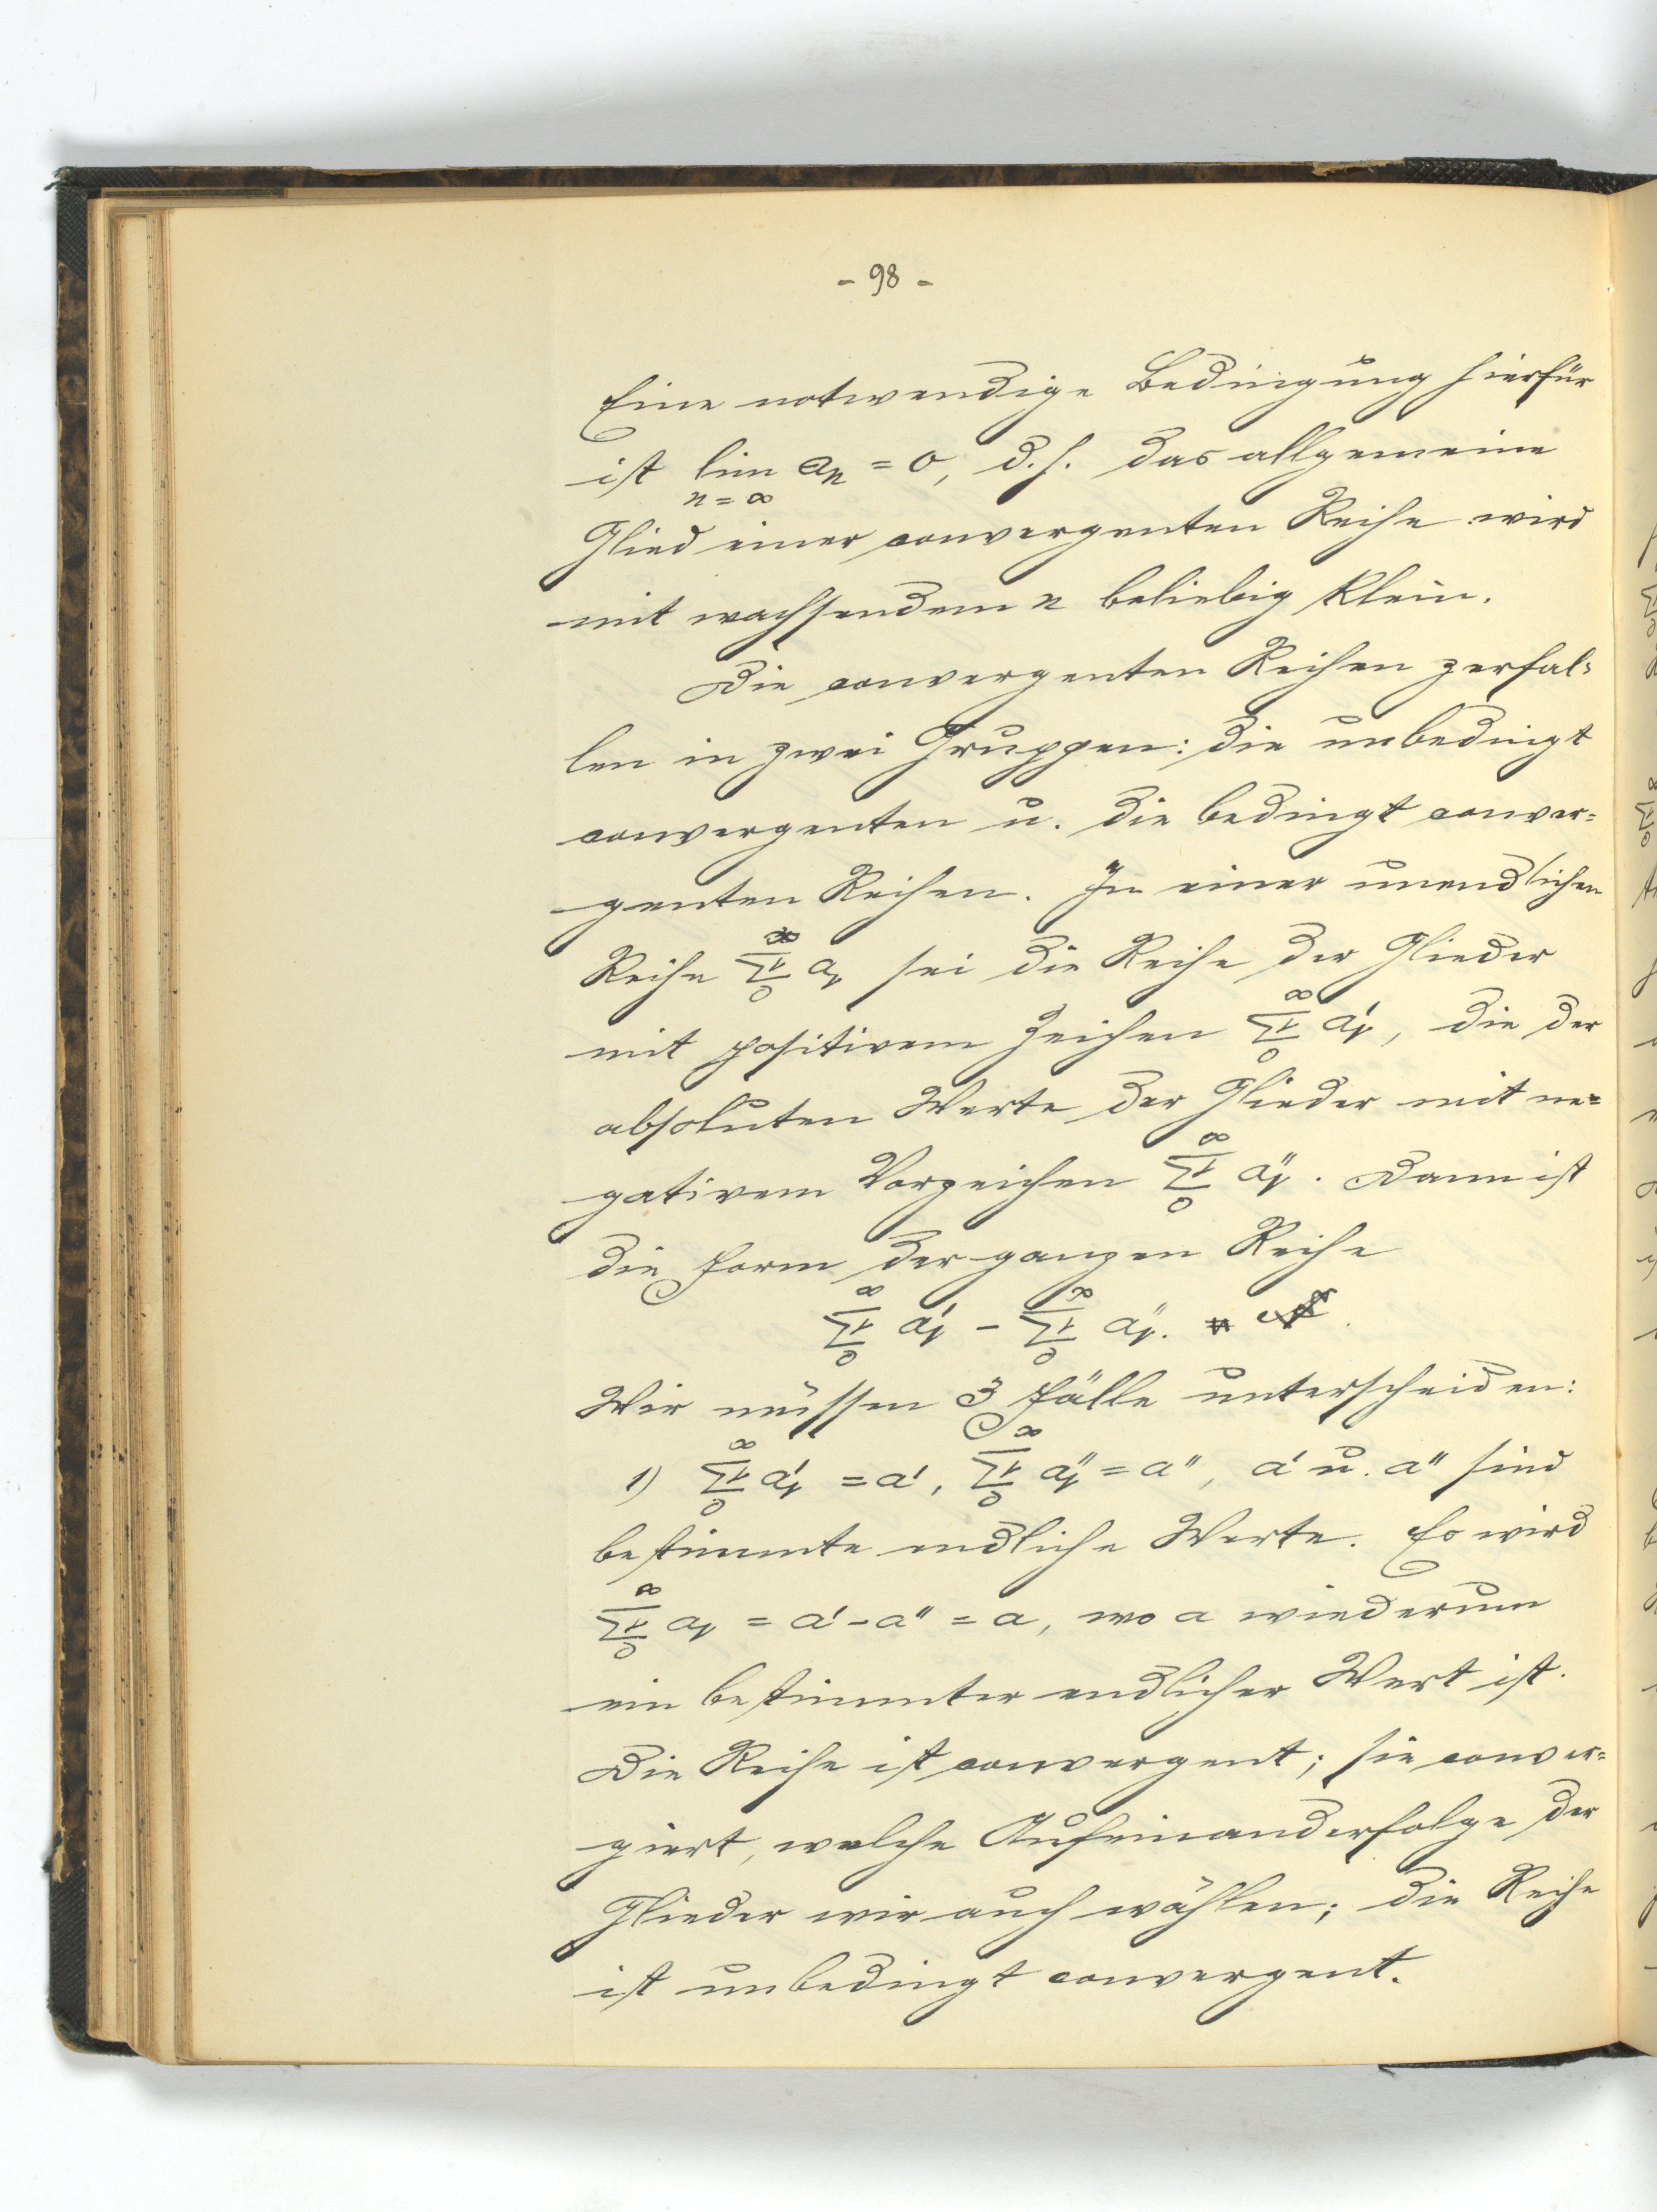 - 98 -
Eine notwendige Bedingung hierfür
ist lim aₙ = 0, d. h. das allgemeine
n = ∞
Glied einer convergenten Reihe wird
mit wachsendem n beliebig klein.
Die convergenten Reihen zerfal-
len in zwei Gruppen: die unbedingt
convergenten u. die bedingt conver-
genten Reihen. In einer unendlichen
Reihe ∞∑ν0 aν sei die Reihe der Glieder
mit positivem Zeichen ∞∑ν0 a'ν, die der
absoluten Werte der Glieder mit ne-
gativem Vorzeichen ∞∑ν0 a''ν. Dann ist
die Form der ganzen Reihe
∞∑ν0 a'ν - ∞∑ν0 a''ν.
Wir müssen 3 Fälle unterscheiden:
1) ∞∑ν0 a'ν = a', ∞∑ν0 a''ν = a'', a' u. a'' sind
bestimmte endliche Werte. Es wird
∞∑ν0 aν = a' - a'' = a, wo a wiederum
ein bestimmter endlicher Wert ist.
Die Reihe ist convergent; sie conver-
giert, welche Aufeinanderfolge der
Glieder wir auch wählen; die Reihe
ist unbedingt convergent.